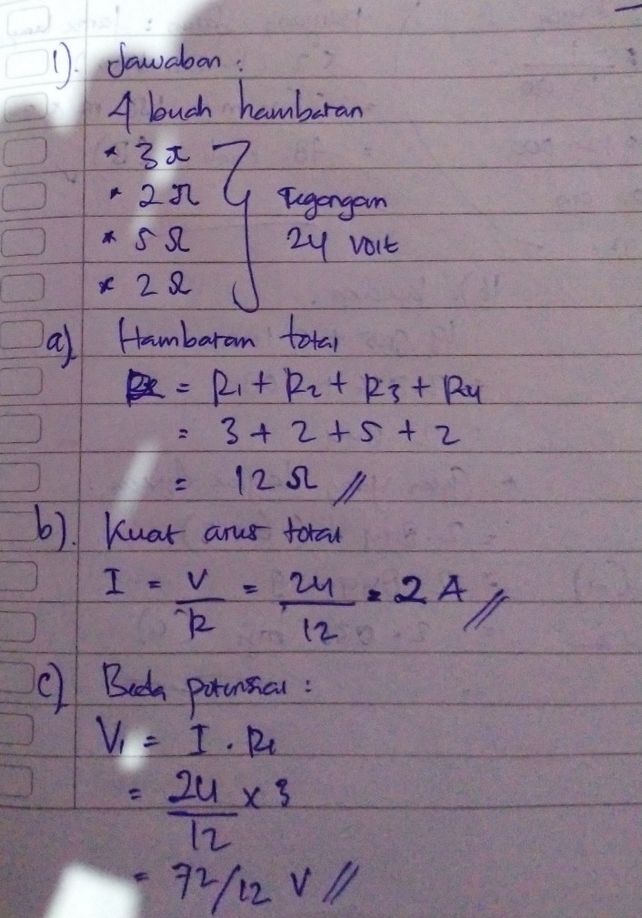 1). Jawaban :
4 buah hambatan
* 3 Ω
* 2 Ω
* 5 Ω
* 2 Ω
Tegangan
24 volt
a) Hambatan total
= R1 + R2 + R3 + R4
= 3 + 2 + 5 + 2
= 12 Ω //
b). Kuat arus total
I = V/R = 24/12 = 2 A //
c) Beda potensial :
V1 = I . R1
= 24/12 x 3
= 72/12 V //